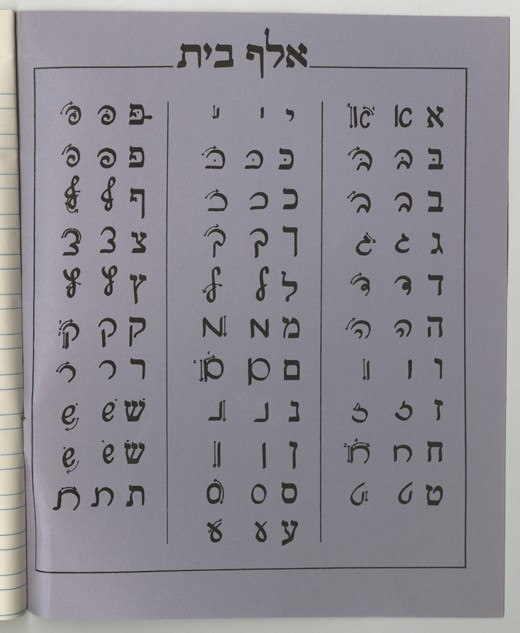 אלף בית
א א א
בּ בּ בּ
ב ב ב
ג ג ג
ד ד ד
ה ה ה
ו ו ו
ז ז ז
ח ח ח
ט ט ט
י י י
כּ כּ כּ
כ כ כ
ך ך ך
ל ל ל
מ מ מ
ם ם ם
נ נ נ
ן ן ן
ס ס ס
ע ע ע
פּ פּ פּ
פ פ פ
ף ף ף
צ צ צ
ץ ץ ץ
ק ק ק
ר ר ר
שׁ שׁ שׁ
שׂ שׂ שׂ
ת ת ת